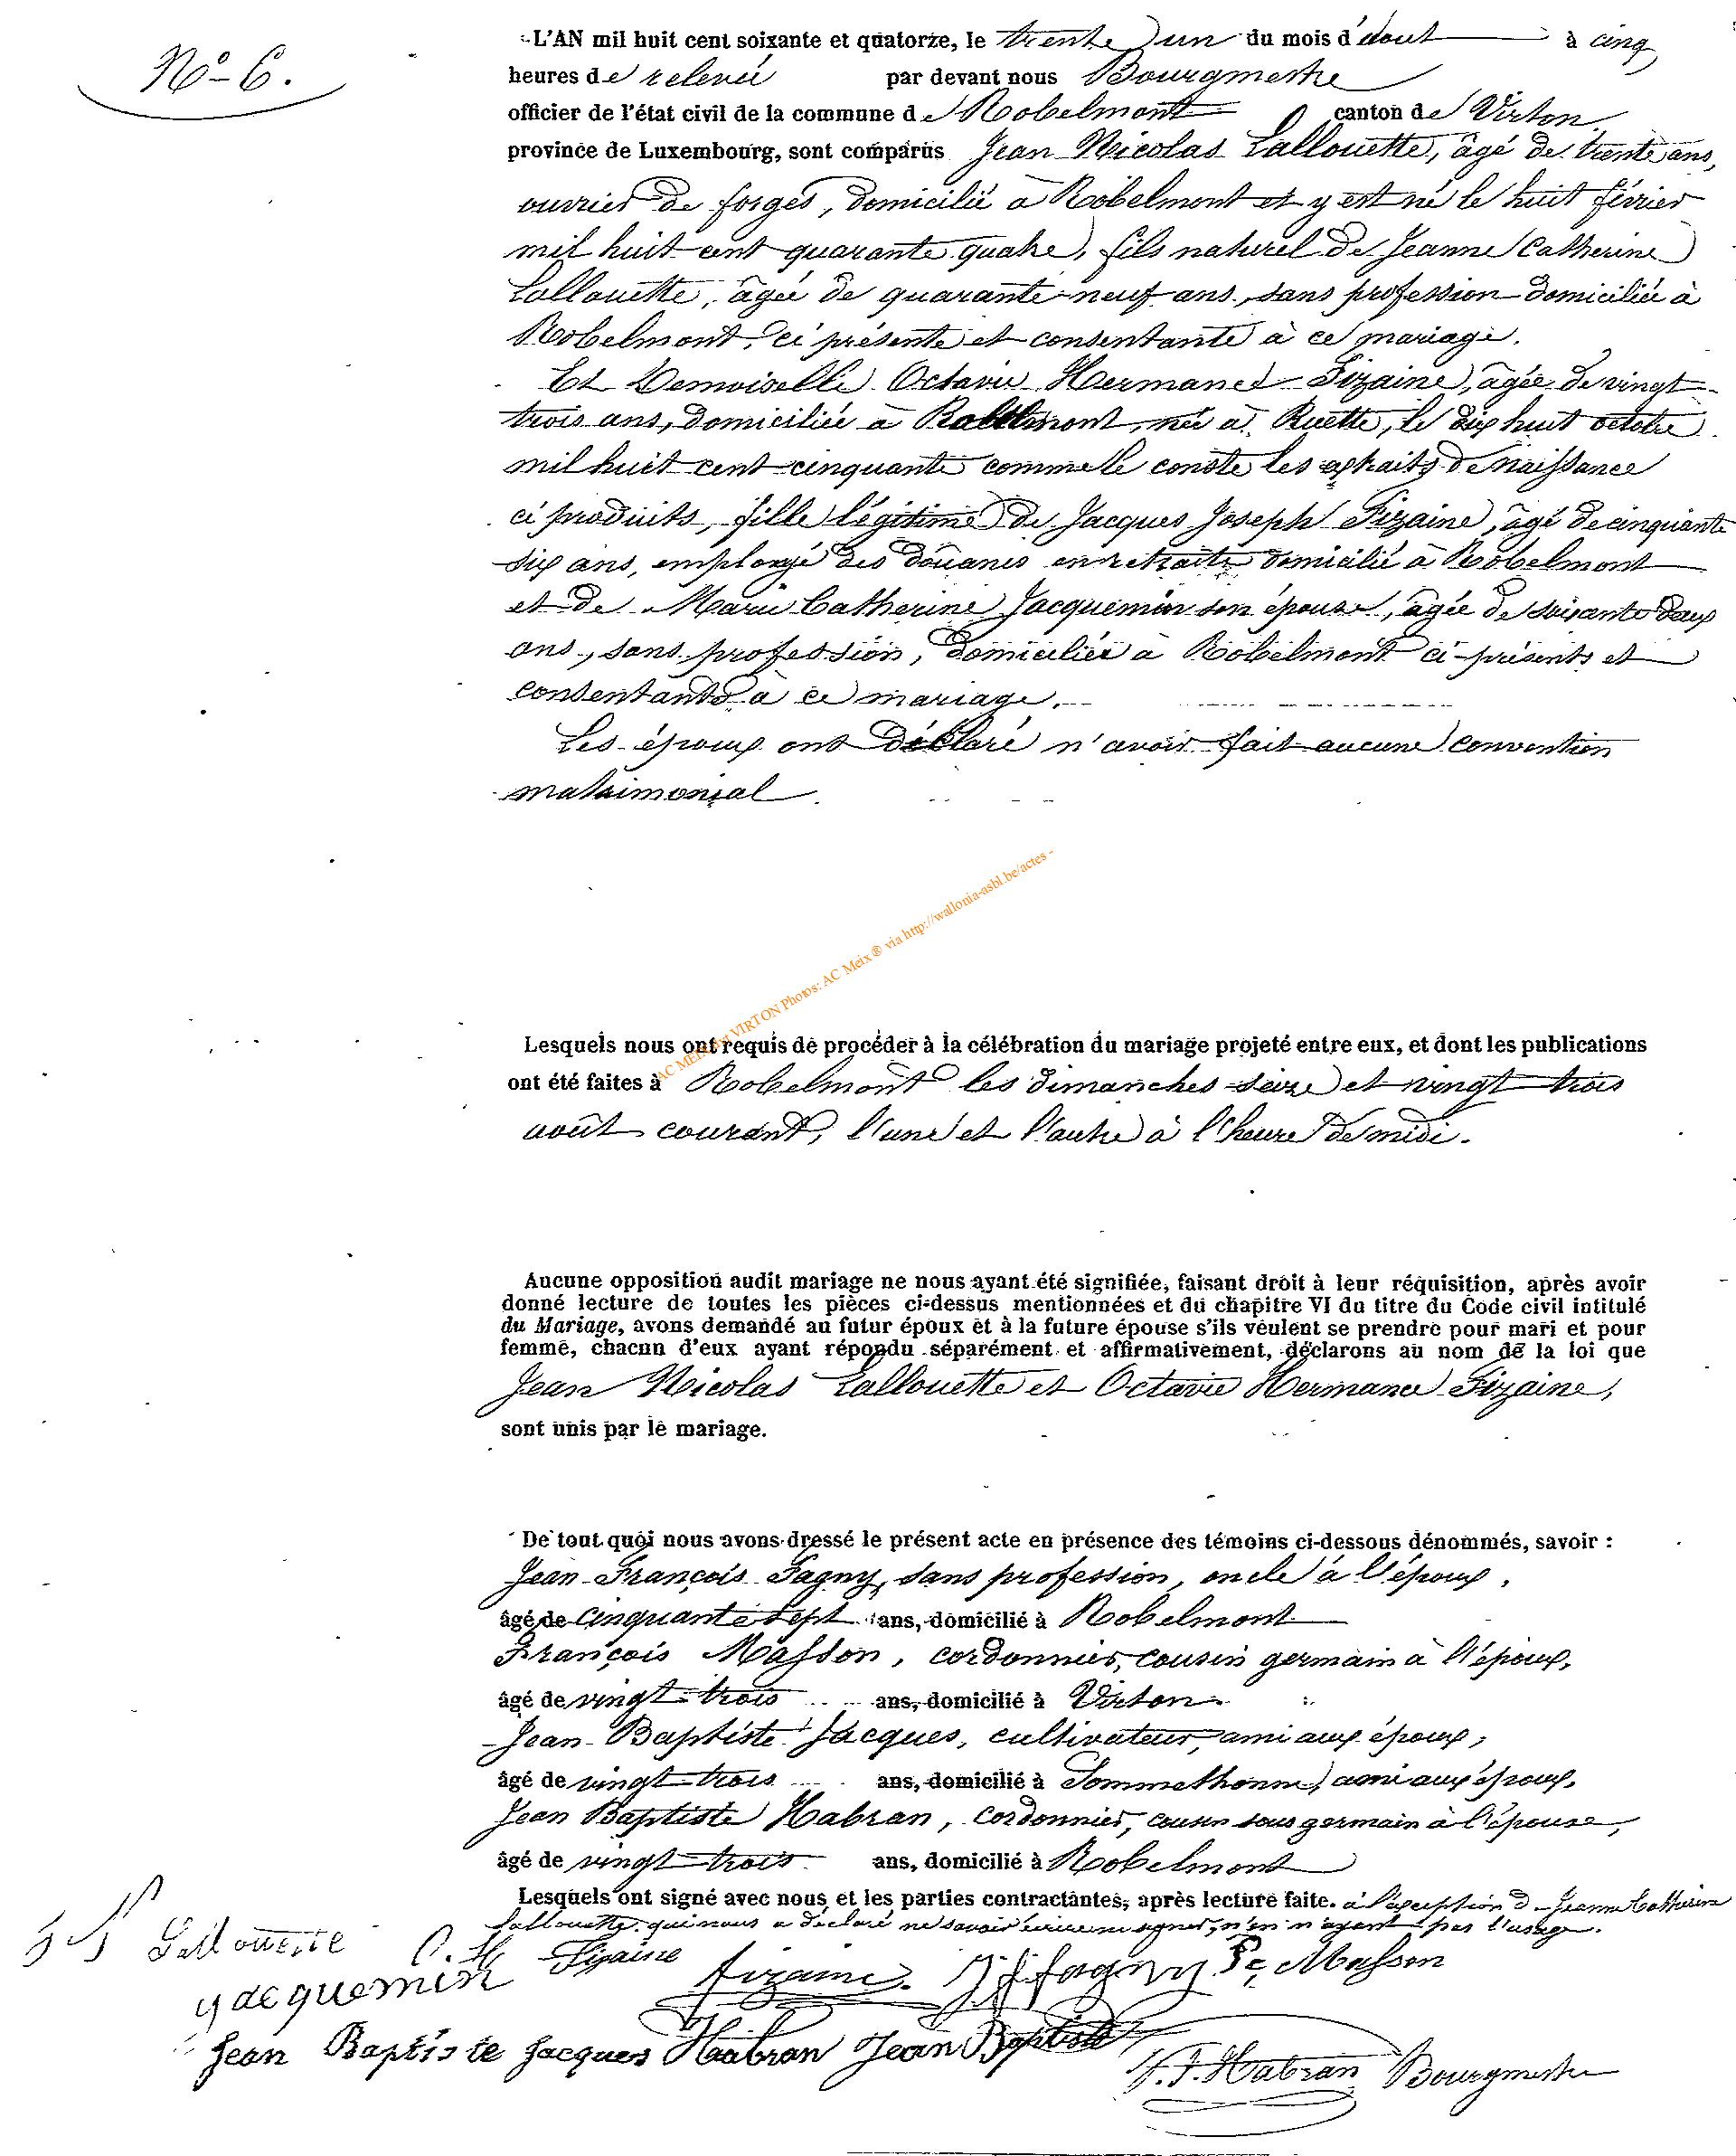 N° 6.
L'AN mil huit cent soixante et quatorze, le trente un du mois d'août à cinq
heures de relevée par devant nous Bourgmestre
officier de l'état civil de la commune de Robelmont canton de Virton
province de Luxembourg, sont comparus Jean Nicolas Lallouette, âgé de trente ans,
ouvrier de forges, domicilié à Robelmont et y est né le huit février
mil huit cent quarante quatre, fils naturel de Jeanne Catherine
Lallouette, âgée de quarante-neuf ans, sans profession domiciliée à
Robelmont, ci présente et consentante à ce mariage.
Et Demoiselle Octavie Hermance Fizaine, âgée de vingt-
trois ans, domiciliée à Robelmont, née à Ruette, le dix huit octobre
mil huit cent cinquante comme le conste les extraits de naissance
ci produits, fille légitime de Jacques Joseph Fizaine, âgé de cinquante
six ans, employé des douanes en retraite domicilié à Robelmont
et de Marie Catherine Jacquemin son épouse, âgée de soixante deux
ans, sans profession, domiciliée à Robelmont ci-présents et
consentants à ce mariage.
Les époux ont déclaré n'avoir fait aucune convention
matrimonial.
AC Meix VIRTON Photos: AC Meix ® via http://wallonia-asbl.be/actes -
Lesquels nous ont requis de procéder à la célébration du mariage projeté entre eux, et dont les publications
ont été faites à Robelmont les dimanches seize et vingt trois
août courant, l'une et l'autre à l'heure de midi.
Aucune opposition audit mariage ne nous ayant été signifiée, faisant droit à leur réquisition, après avoir
donné lecture de toutes les pièces ci-dessus mentionnées et du chapitre VI du titre du Code civil intitulé
du Mariage, avons demandé au futur époux et à la future épouse s'ils veulent se prendre pour mari et pour
femme, chacun d'eux ayant répondu séparément et affirmativement, déclarons au nom de la loi que
Jean Nicolas Lallouette et Octavie Hermance Fizaine,
sont unis par le mariage.
De tout quoi nous avons dressé le présent acte en présence des témoins ci-dessous dénommés, savoir :
Jean François Fagny, sans profession, oncle à l'époux,
âgé de cinquante sept ans, domicilié à Robelmont
François Masson, cordonnier, cousin germain à l'époux,
âgé de vingt-trois ans, domicilié à Virton
Jean Baptiste Jacques, cultivateur, ami aux époux,
âgé de vingt-trois ans, domicilié à Sommethonne, ami aux époux,
Jean Baptiste Habran, cordonnier, cousin sous germain à l'épouse,
âgé de vingt-trois ans, domicilié à Robelmont
Lesquels ont signé avec nous et les parties contractantes, après lecture faite. à l'exception d Jeanne Catherine
Lallouette qui nous a déclaré ne savoir écrire ni signer, n'en n'ayant pas l'usage.
Lallouette O. H. Fizaine fizaine J f fagny Fc. Masson
jacquemin
Jean Baptiste Jacques Habran Jean Baptiste
J. J. Habran Bourgmestre